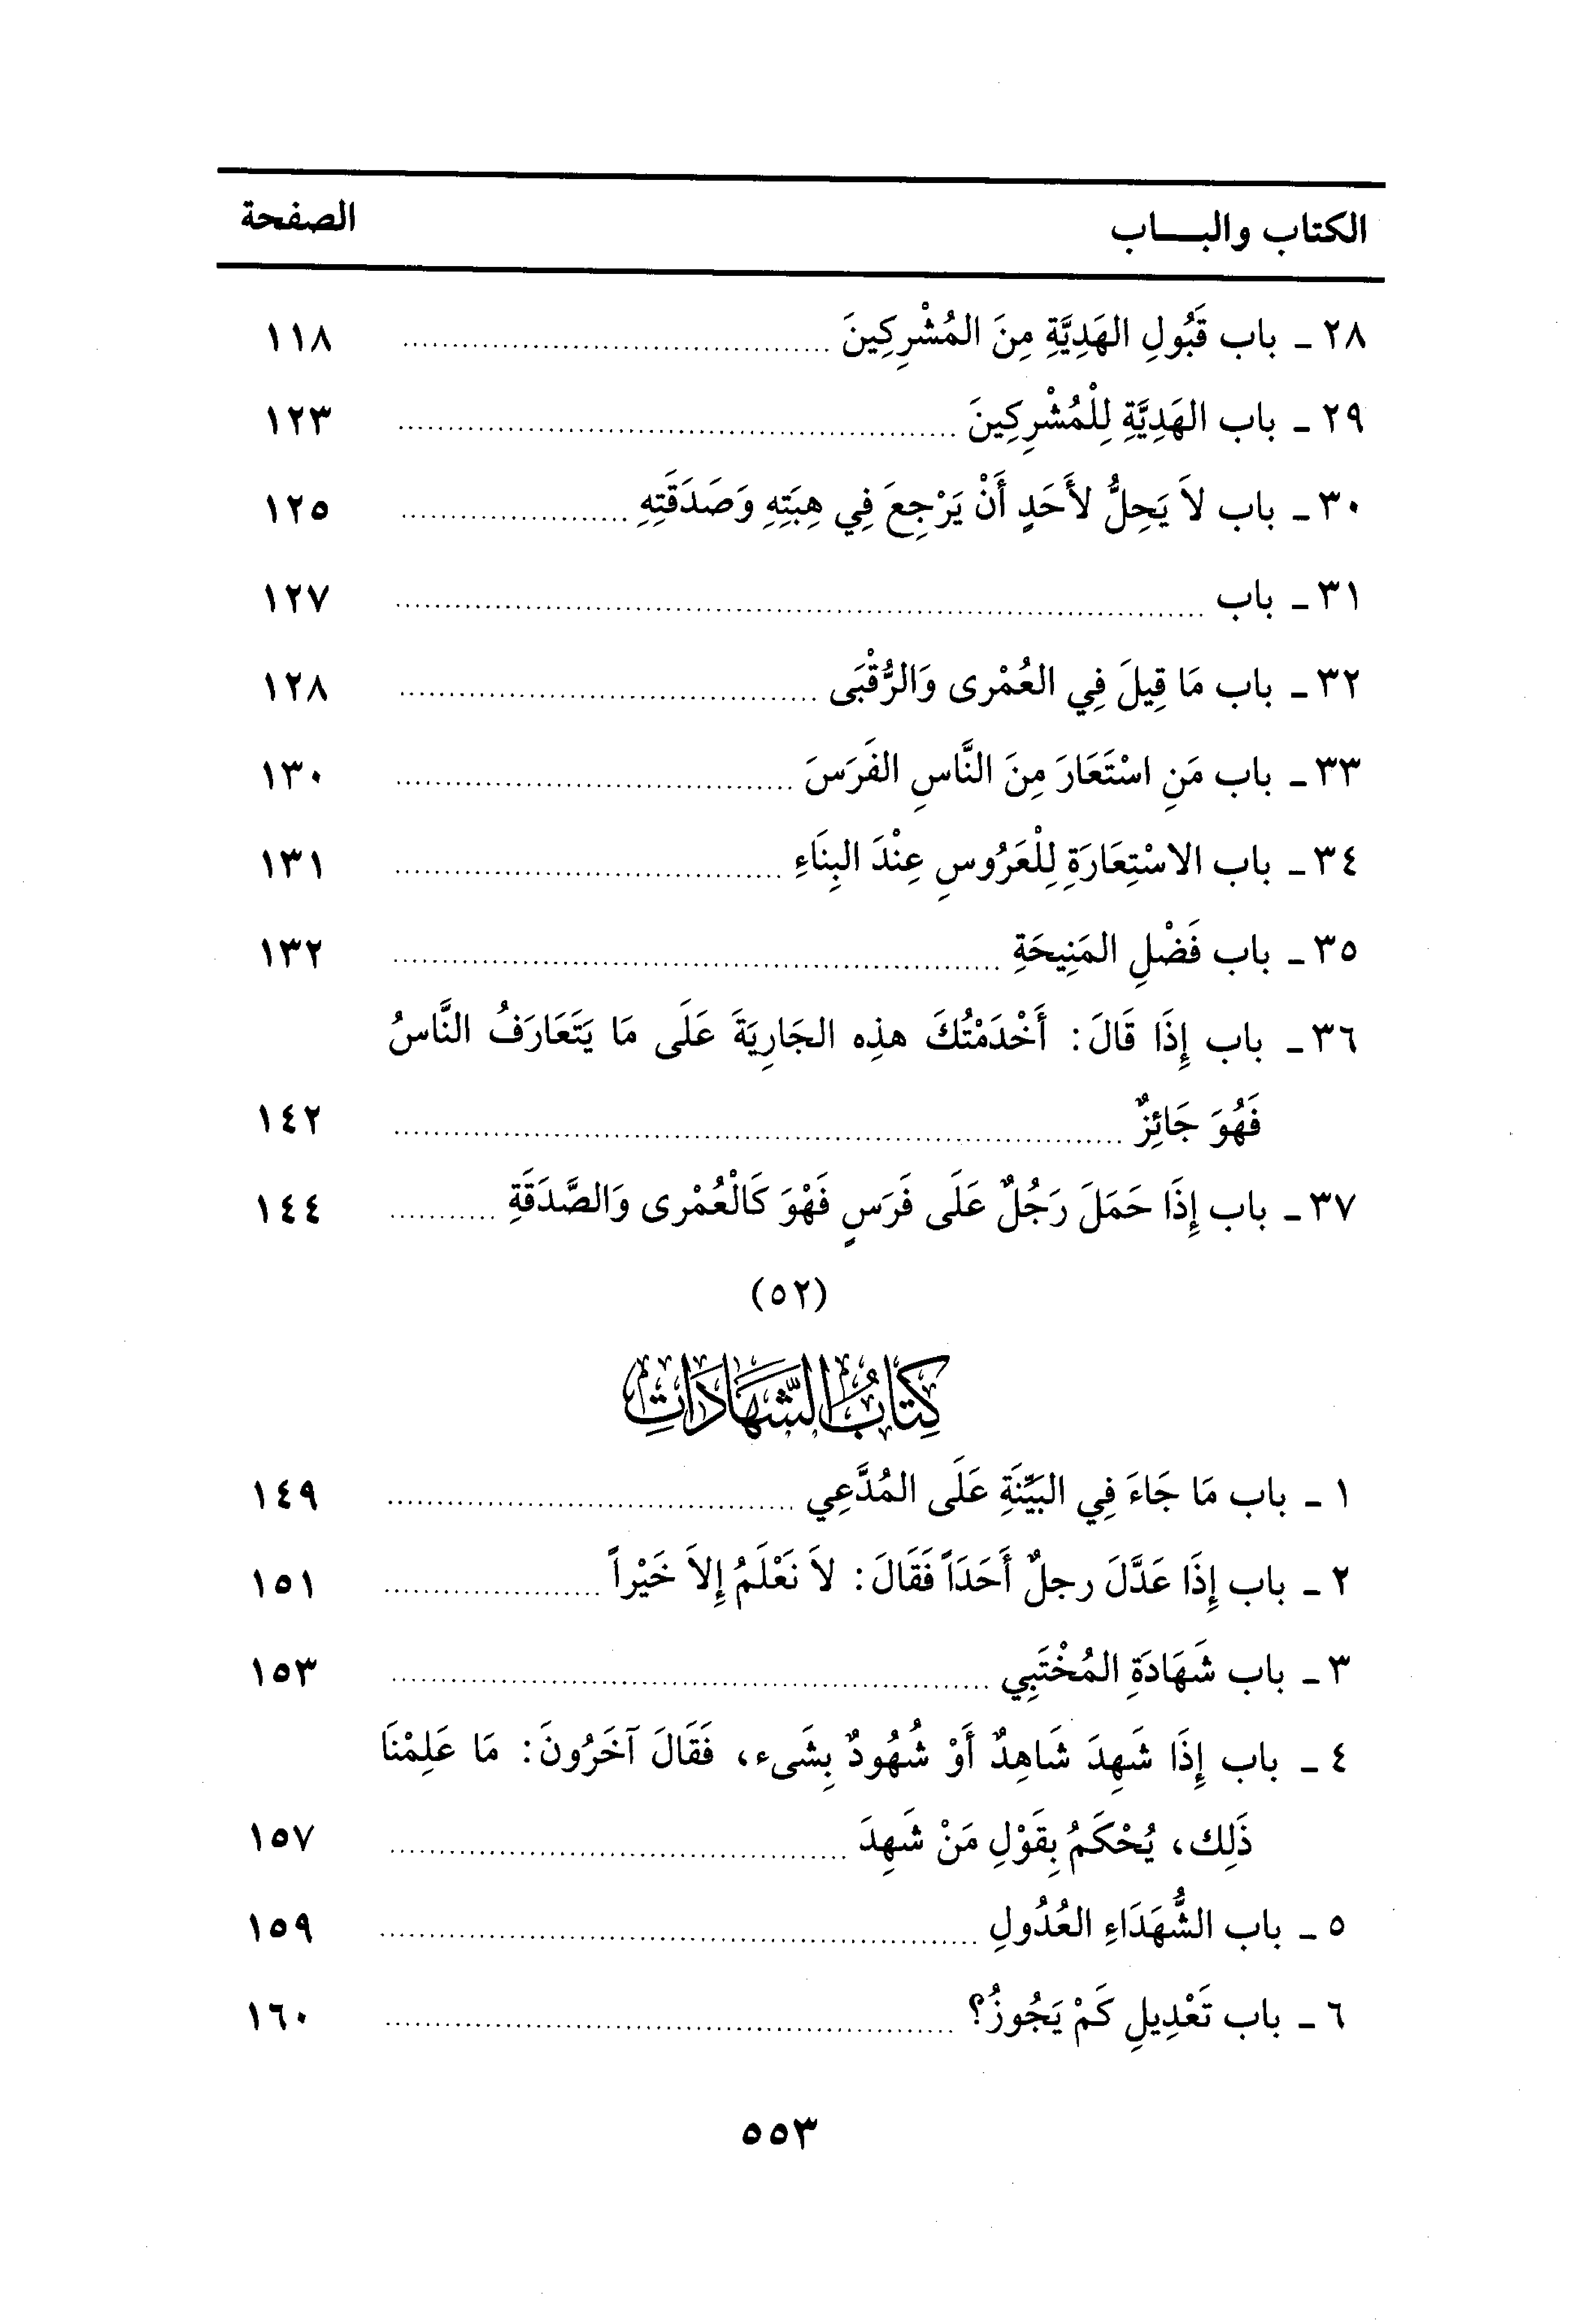 الكتاب والبـــاب الصفحة
٢٨ ـ باب قَبُولِ الهَدِيَّةِ مِنَ المُشْرِكِينَ ........ ١١٨
٢٩ ـ باب الهَدِيَّةِ لِلْمُشْرِكِينَ ........ ١٢٣
٣٠ ـ باب لاَ يَحِلُّ لأَحَدٍ أَنْ يَرْجِعَ فِي هِبَتِهِ وَصَدَقَتِهِ ........ ١٢٥
٣١ ـ باب ........ ١٢٧
٣٢ ـ باب مَا قِيلَ فِي العُمْرى وَالرُّقْبَى ........ ١٢٨
٣٣ ـ باب مَنِ اسْتَعَارَ مِنَ النَّاسِ الفَرَسَ ........ ١٣٠
٣٤ ـ باب الاسْتِعَارَةِ لِلْعَرُوسِ عِنْدَ البِنَاءِ ........ ١٣١
٣٥ ـ باب فَضْلِ المَنِيحَةِ ........ ١٣٢
٣٦ ـ باب إِذَا قَالَ: أَخْدَمْتُكَ هذِه الجَارِيَةَ عَلَى مَا يَتَعَارَفُ النَّاسُ
فَهُوَ جَائِزٌ ........ ١٤٢
٣٧ ـ باب إِذَا حَمَلَ رَجُلٌ عَلَى فَرَسٍ فَهْوَ كَالْعُمْرى وَالصَّدَقَةِ ........ ١٤٤
(٥٢)
كِتَابُ الشَّهَادَاتِ
١ ـ باب مَا جَاءَ فِي البَيِّنَةِ عَلَى المُدَّعِي ........ ١٤٩
٢ ـ باب إِذَا عَدَّلَ رجلٌ أَحَدَاً فَقَالَ: لاَ نَعْلَمُ إِلاَ خَيْراً ........ ١٥١
٣ ـ باب شَهَادَةِ المُخْتَبِي ........ ١٥٣
٤ ـ باب إِذَا شَهِدَ شَاهِدٌ أَوْ شُهُودٌ بِشَىء، فَقَالَ آخَرُونَ: مَا عَلِمْنَا
ذَلِك، يُحْكَمُ بِقَوْلِ مَنْ شَهِدَ ........ ١٥٧
٥ ـ باب الشُّهَدَاءِ العُدُولِ ........ ١٥٩
٦ ـ باب تَعْدِيلِ كَمْ يَجُوزُ؟ ........ ١٦٠
٥٥٣